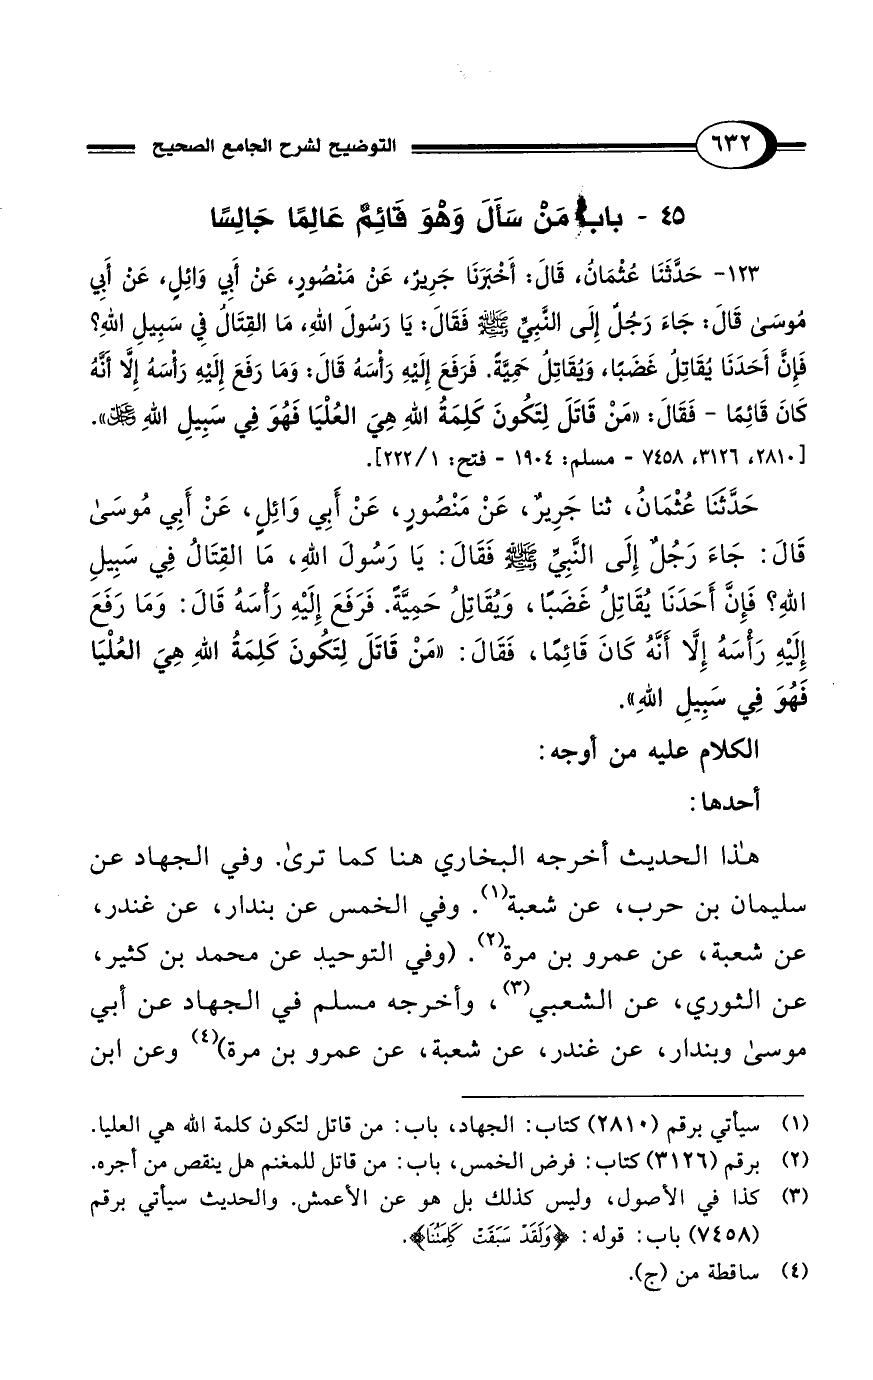 ٦٣٢ التوضيح لشرح الجامع الصحيح
٤٥ - باب مَنْ سَأَلَ وَهْوَ قَائِمٌ عَالِمًا جَالِسًا
١٢٣- حَدَّثَنَا عُثْمَانُ، قَالَ: أَخْبَرَنَا جَرِيرٌ، عَنْ مَنْصُورٍ، عَنْ أَبِي وَائِلٍ، عَنْ أَبِي
مُوسَىٰ قَالَ: جَاءَ رَجُلٌ إِلَى النَّبِيِّ ﷺ فَقَالَ: يَا رَسُولَ اللهِ، مَا القِتَالُ فِي سَبِيلِ اللهِ؟
فَإِنَّ أَحَدَنَا يُقَاتِلُ غَضَبًا، وَيُقَاتِلُ حَمِيَّةً. فَرَفَعَ إِلَيْهِ رَأْسَهُ قَالَ: وَمَا رَفَعَ إِلَيْهِ رَأْسَهُ إِلَّا أَنَّهُ
كَانَ قَائِمًا - فَقَالَ: «مَنْ قَاتَلَ لِتَكُونَ كَلِمَةُ اللهِ هِيَ العُلْيَا فَهُوَ فِي سَبِيلِ اللهِ ﷻ».
[٢٨١٠، ٣١٢٦، ٧٤٥٨ - مسلم: ١٩٠٤ - فتح: ١/ ٢٢٢].
حَدَّثَنَا عُثْمَانُ، ثنا جَرِيرٌ، عَنْ مَنْصُورٍ، عَنْ أَبِي وَائِلٍ، عَنْ أَبِي مُوسَىٰ
قَالَ: جَاءَ رَجُلٌ إِلَى النَّبِيِّ ﷺ فَقَالَ: يَا رَسُولَ اللهِ، مَا القِتَالُ فِي سَبِيلِ
اللهِ؟ فَإِنَّ أَحَدَنَا يُقَاتِلُ غَضَبًا، وَيُقَاتِلُ حَمِيَّةً. فَرَفَعَ إِلَيْهِ رَأْسَهُ قَالَ: وَمَا رَفَعَ
إِلَيْهِ رَأْسَهُ إِلَّا أَنَّهُ كَانَ قَائِمًا، فَقَالَ: «مَنْ قَاتَلَ لِتَكُونَ كَلِمَةُ اللهِ هِيَ العُلْيَا
فَهُوَ فِي سَبِيلِ اللهِ».
الكلام عليه من أوجه:
أحدها:
هذا الحديث أخرجه البخاري هنا كما ترىٰ. وفي الجهاد عن
سليمان بن حرب، عن شعبة(١). وفي الخمس عن بندار، عن غندر،
عن شعبة، عن عمرو بن مرة(٢). (وفي التوحيد عن محمد بن كثير،
عن الثوري، عن الشعبي(٣)، وأخرجه مسلم في الجهاد عن أبي
موسىٰ وبندار، عن غندر، عن شعبة، عن عمرو بن مرة)(٤) وعن ابن
(١) سيأتي برقم (٢٨١٠) كتاب: الجهاد، باب: من قاتل لتكون كلمة الله هي العليا.
(٢) برقم (٣١٢٦) كتاب: فرض الخمس، باب: من قاتل للمغنم هل ينقص من أجره.
(٣) كذا في الأصول، وليس كذلك بل هو عن الأعمش. والحديث سيأتي برقم
(٧٤٥٨) باب: قوله: ﴿وَلَقَدْ سَبَقَتْ كَلِمَتُنَا﴾.
(٤) ساقطة من (ج).